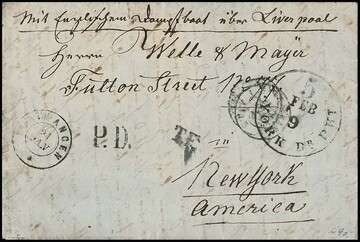 Mit Englischem Dampfboot über Liverpool
Herrn Welle & Mayer
Fulton Street No
5
FEB
9
YORK BR. PKT
21
JAN
P.D.
in
New York
America